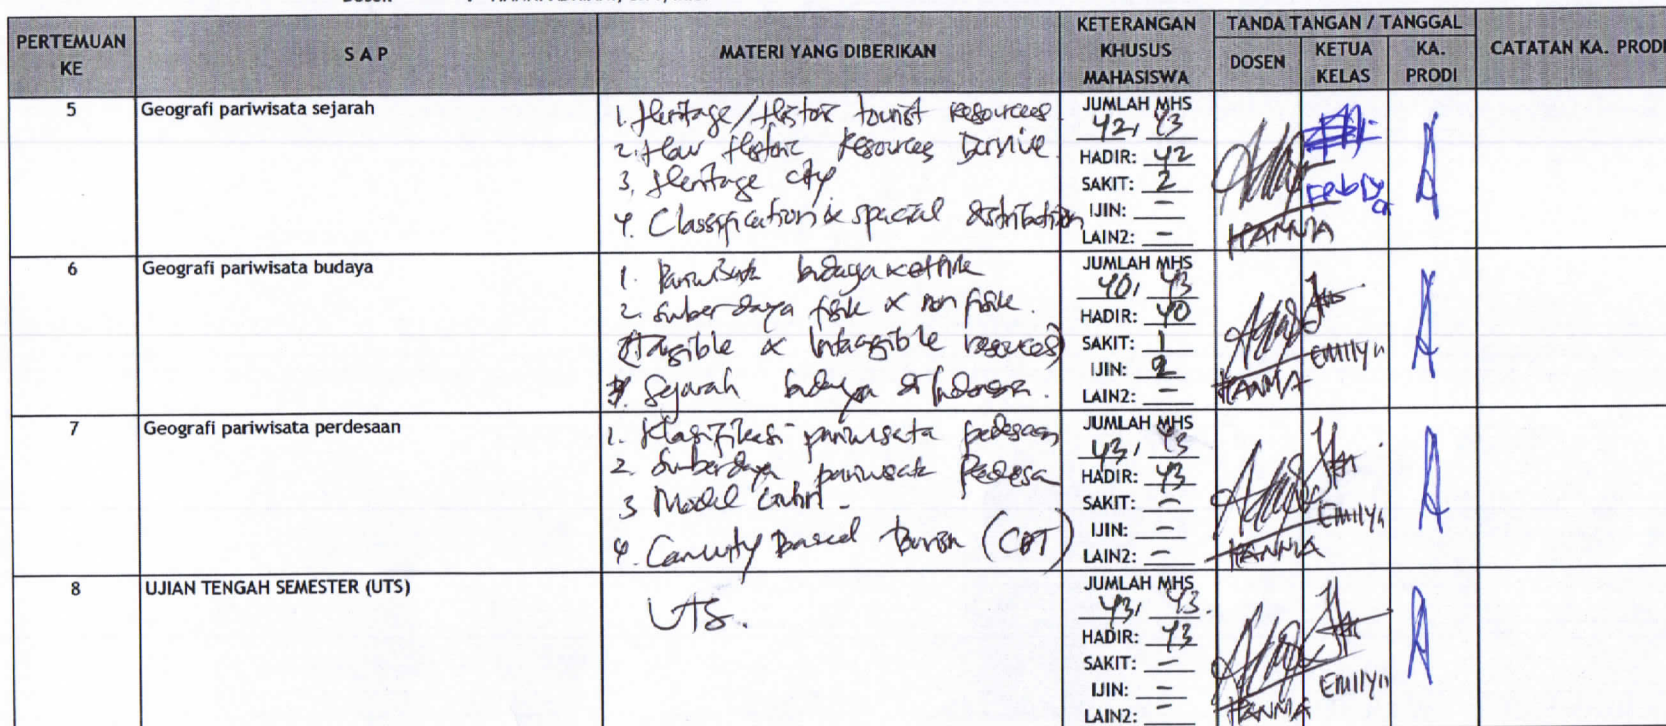 PERTEMUAN KE
S A P
MATERI YANG DIBERIKAN
KETERANGAN KHUSUS MAHASISWA
TANDA TANGAN / TANGGAL
DOSEN
KETUA KELAS
KA. PRODI
CATATAN KA. PRODI
5
Geografi pariwisata sejarah
1. Heritage/Historic tourist resources
2. How Historic Resources
3. Heritage city
4. Classification & spacial distribution
JUMLAH MHS
42, 43
HADIR: 42
SAKIT: 2
IJIN: -
LAIN2: -
HANNA
6
Geografi pariwisata budaya
1. Pariwisata budaya & etnik
2. Sumber daya fisik & non fisik.
(Tangible & Intangible resources)
Sejarah budaya di Indonesia.
JUMLAH MHS
40, 43
HADIR: 40
SAKIT: 1
IJIN: 2
LAIN2: -
HANNA
Emilyn
7
Geografi pariwisata perdesaan
1. Klasifikasi pariwisata pedesaan
2 Sumberdaya pariwisata Pedesa
3 Model
4. Based Tourism (CBT)
JUMLAH MHS
43, 43
HADIR: 43
SAKIT: -
IJIN: -
LAIN2: -
HANNA
Emilyn
8
UJIAN TENGAH SEMESTER (UTS)
UTS.
JUMLAH MHS
43, 43.
HADIR: 43
SAKIT: -
IJIN: -
LAIN2: -
HANNA
Emilyn